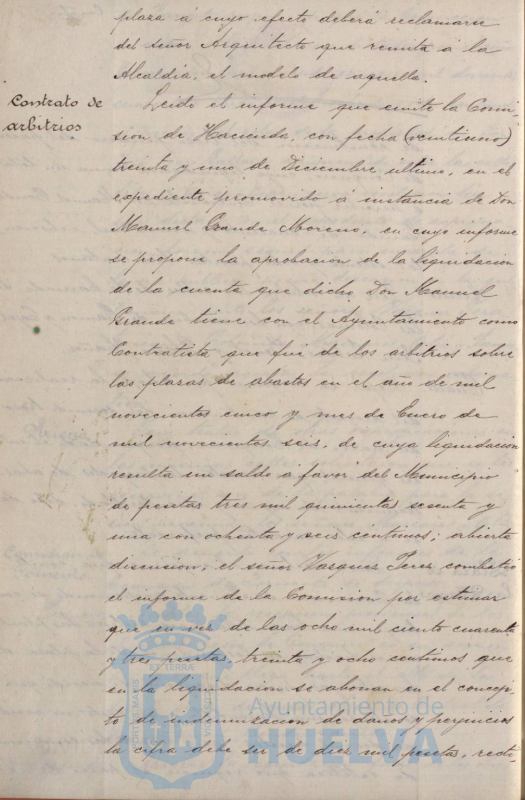 plaza á cuyo efecto deberá reclamarse
del señor Arquitecto que remita á la
Alcaldia, el modelo de aquella.
Contrato de
arbitrios
Leido el informe que emite la Comi-
sion de Hacienda, con fecha (veintiuno)
treinta y uno de Diciembre último, en el
expediente promovido á instancia de Don
Manuel Grande Moreno, en cuyo informe
se propone la aprobacion de la liquidacion
de la cuenta que dicho Don Manuel
Grande tiene con el Ayuntamiento como
Contratista que fué de los arbitrios sobre
las plazas de abastos en el año de mil
novecientos cinco y mes de Enero de
mil novecientos seis, de cuya liquidacion
resulta un saldo á favor del Municipio
de pesetas tres mil quinientas sesenta y
una con ochenta y seis céntimos; abierta
discusion, el señor Vazquez Perez combatió
el informe de la Comision por estimar
que en vez de las ocho mil ciento cuarenta
y tres pesetas, treinta y ocho céntimos que
en la liquidacion se abonan en el concep-
to de indemnizacion de daños y perjuicios
la cifra debe ser de diez mil pesetas, recti-
Ayuntamiento de
HUELVA